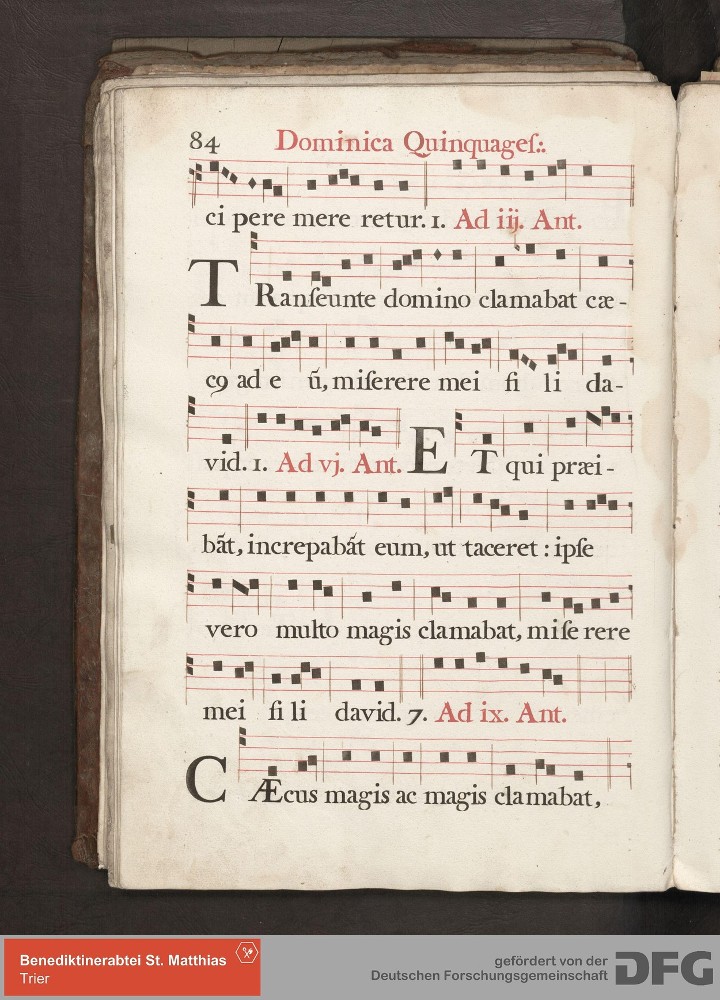 84 Dominica Quinquageſ:.
ci pere mere retur. 1. Ad iij. Ant.
TRanſeunte domino clamabat cæ-
cꝯ ad e ũ, miſerere mei fi li da-
vid. 1. Ad vj. Ant. ET qui præi-
bãt, increpabãt eum, ut taceret : ipſe
vero multo magis clamabat, miſe rere
mei fi li david. 7. Ad ix. Ant.
CÆcus magis ac magis clamabat,
Benediktinerabtei St. Matthias
Trier
gefördert von der
Deutschen Forschungsgemeinschaft
DFG